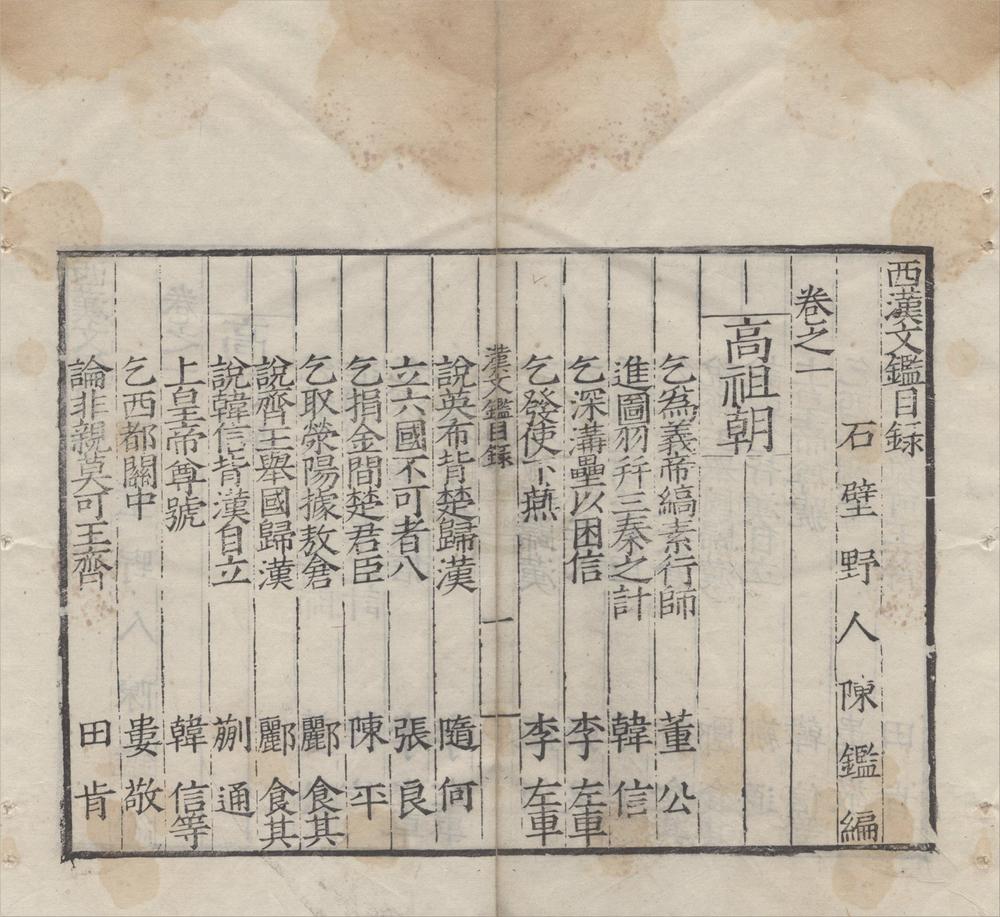 西漢文鑑目録
石壁野人陳鑑編
卷之一
高祖朝
乞為義帝縞素行師 董公
進圖羽幷三秦之計 韓信
乞深溝壘以困信 李左車
乞發使下燕 李左車
漢文鑑目録 一
說英布背楚歸漢 隨何
立六國不可者八 張良
乞捐金間楚君臣 陳平
乞取滎陽據敖倉 酈食其
說齊王舉國歸漢 酈食其
說韓信背漢自立 蒯通
上皇帝尊號 韓信等
乞西都關中 婁敬
論非親莫可王齊 田肯